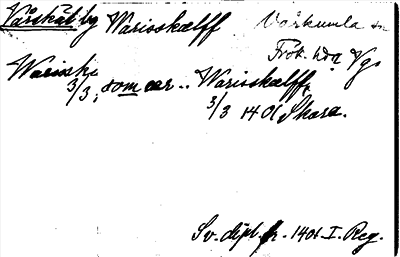 Vårskälby Warisskælff Vårkumla sn
Frök. hd Vg.
Warisske
3/3, som ær .. Warisskælff,
3/3 1401 Skara.
Sv. dipl. fr. 1401 I. Reg.